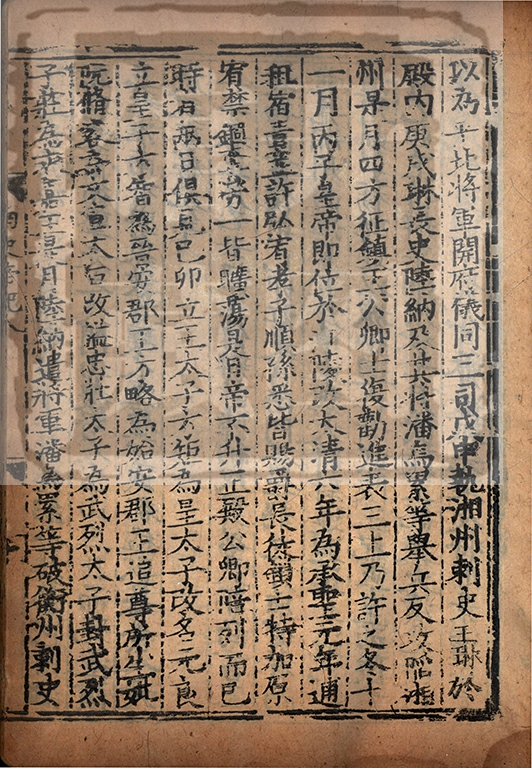 以為平北將軍開府儀同三司戊申執湘州刺史王琳於
殿内庚戌琳長史陸納及其將潘烏累等舉兵反攻陷湘
州是月四方征鎮王公卿士復勸進表三上乃許之冬十
一月丙子皇帝即位於江陵改太清六年為承聖元年逋
租宿責並許弘宥孝子順孫悉皆賜爵長徒鎖士特加原
宥禁錮奪勞一皆曠蕩是日帝不升正殿公卿陪列而已
時有兩日俱見己卯立王太子方矩為皇太子改名元良
立皇子方智為晉安郡王方略為始安郡王追尊所生妣
阮脩容為文宣太后改謚忠壯太子為武烈太子封武烈
子莊為永嘉王是月陸納遣將軍潘烏累等破衡州刺史